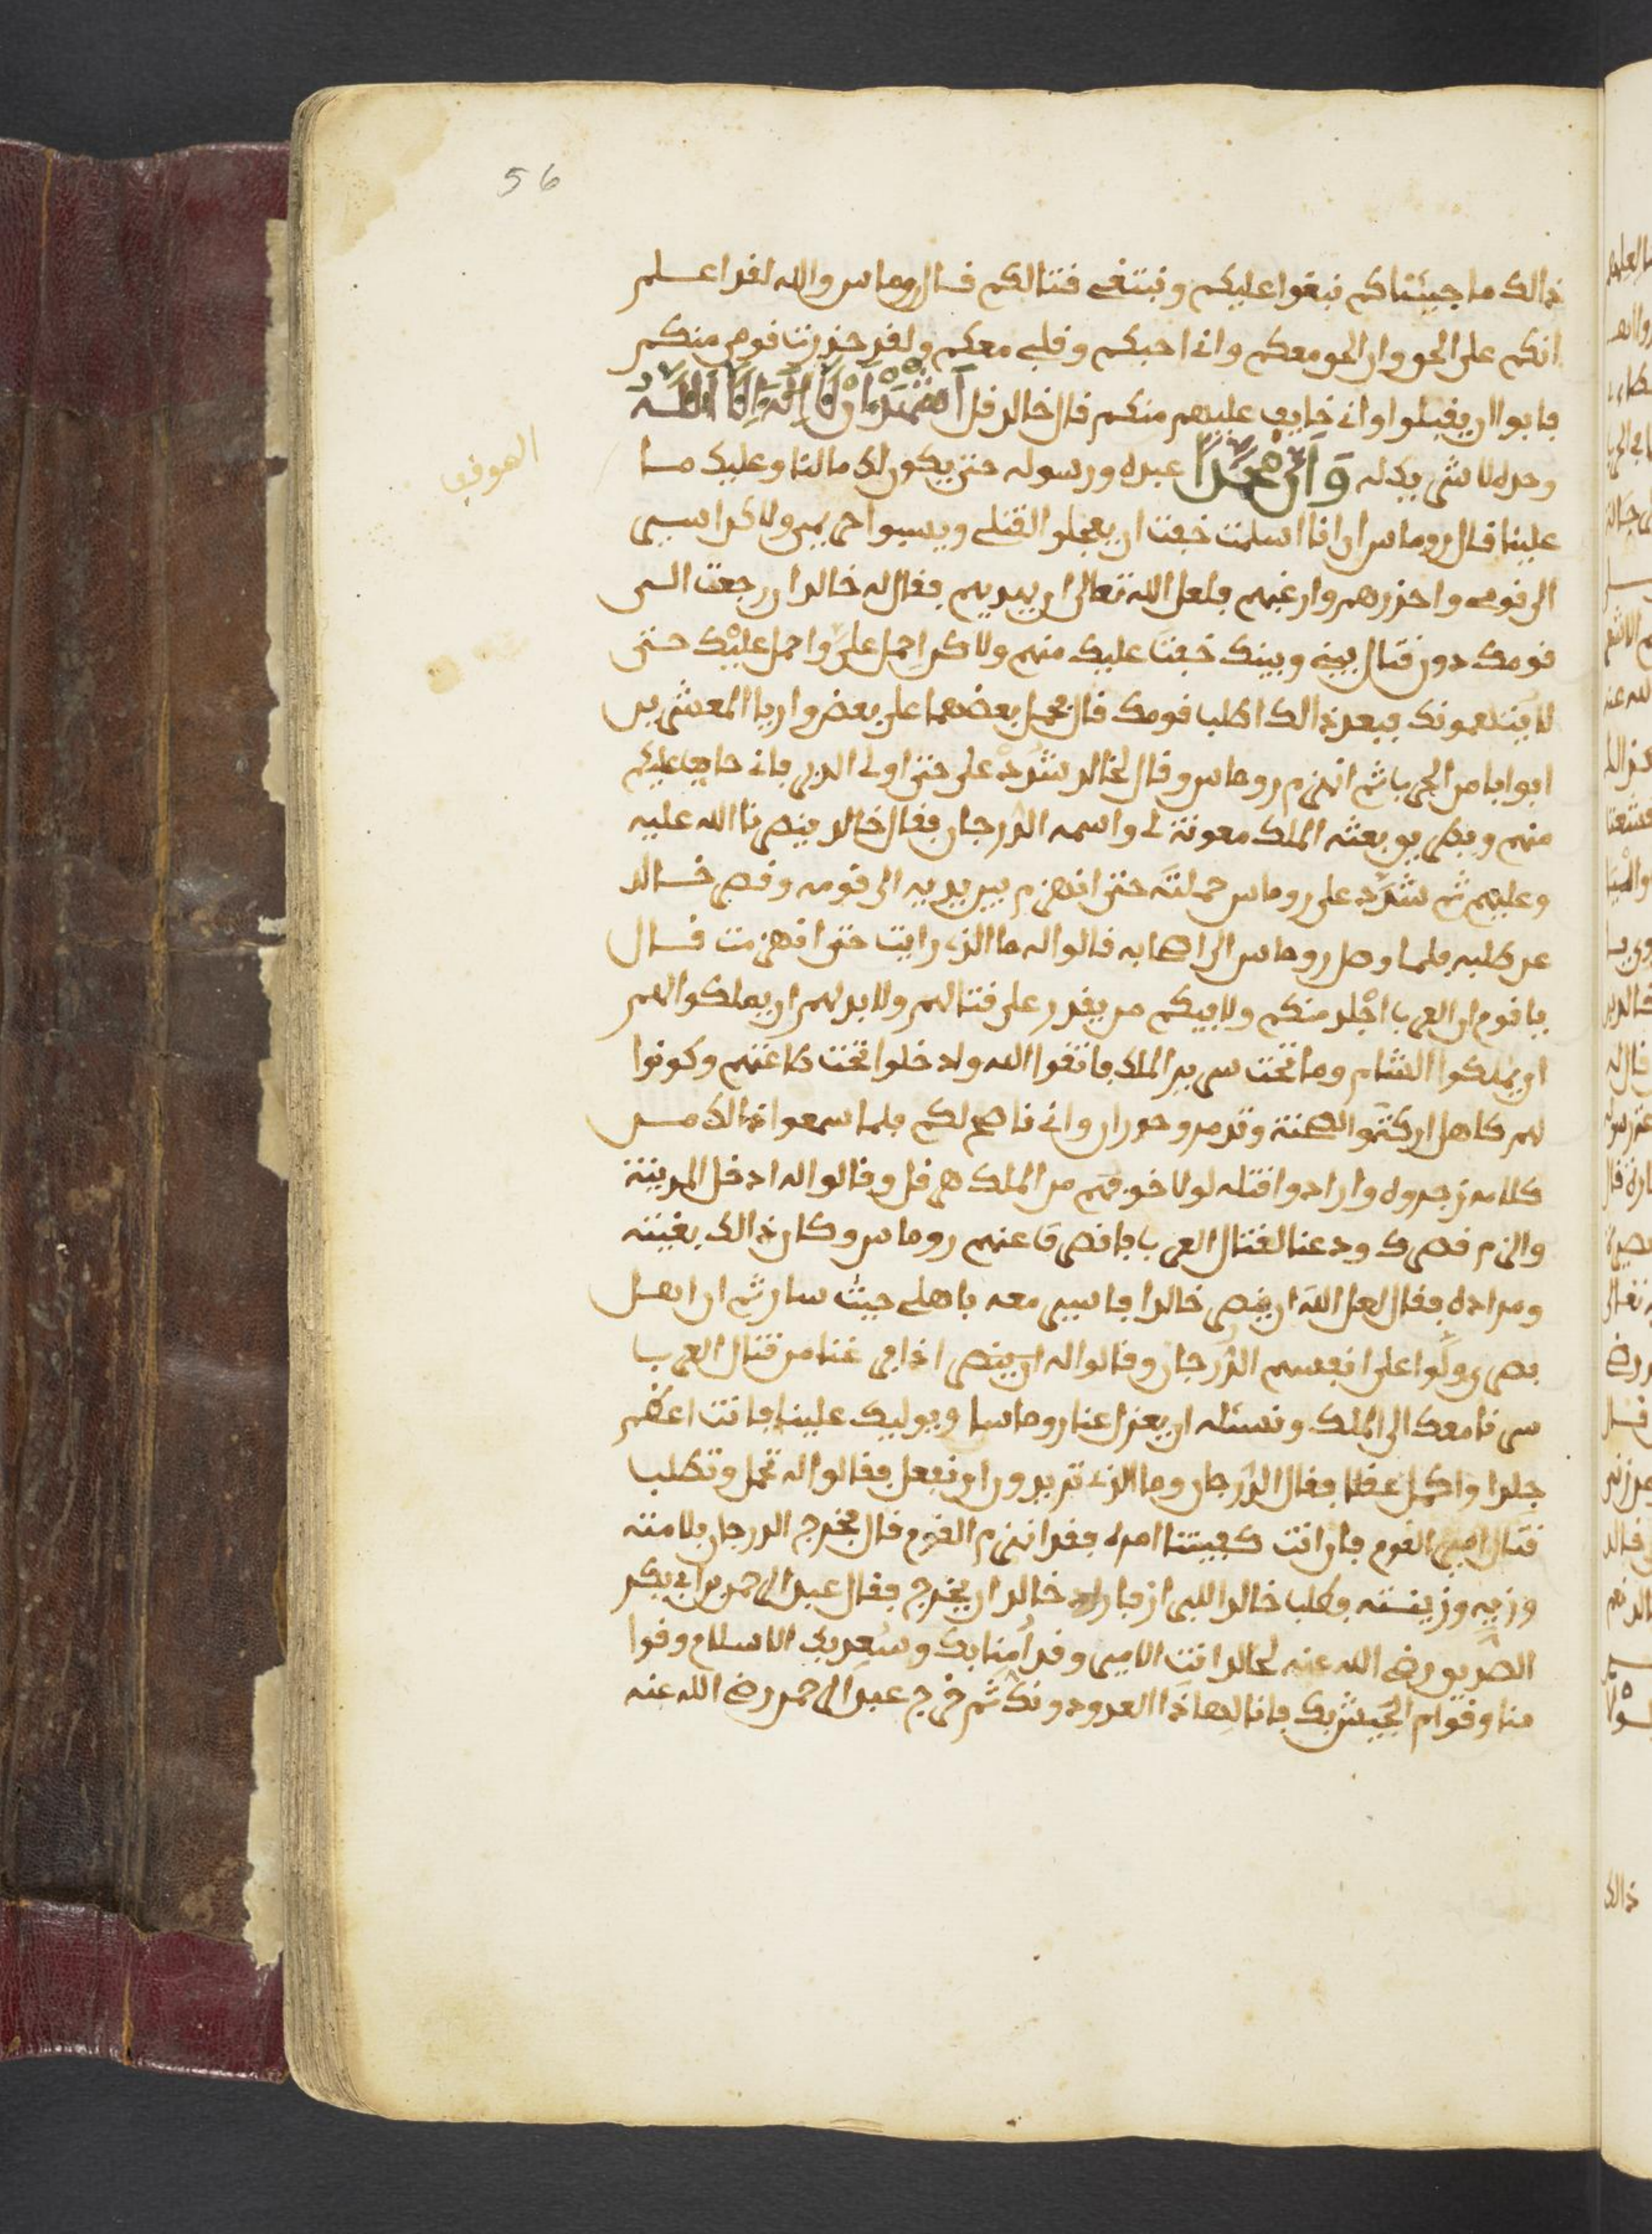 56
ذالك ما جيئناكم نبغوا عليكم ونبتغى قتالكم قال روماس والله لقد اعلم
انكم على الحق وان الحق معكم وانى احبكم وقلبى معكم ولقد حذرت قومى منكم
فابوا ان يقبلوا وانى خايف عليهم منكم قال خالد قل اَشْهَدُ اَنْ لَّا اِلَهَ اِلَّا اَللَّهُ
وحده لا شريك له وَاَنَّ مُحَمَّدًا عبده ورسوله حتى يكون لك ما لنا وعليك ما
الموفى
علينا قال روماس ان انا اسلمت خفت ان يعجلوا لقتلى ويسبوا حريمى ولاكن اسير
الى قومى واحذرهم وارغبهم فلعل الله تعالى ان يهديهم فقال له خالد ان رجعت الى
قومك دون قتال بينى وبينك خفت عليك منهم ولاكن احمل علىّ واحمل عليْك حتى
لا يتهمونك فبعد ذالك اطلب قومك قال فحمل بعضهما على بعض واريا المعشرين
ابوابا من الحرب ثم انهزم روماس وقال لخالد شدّدْ على حتى اولى الدبر فانى خايف عليكم
منهم وبطريق بعثه الملك معونة لى واسمه الدّرجان فقال خالد ينصرنا الله عليه
وعليهم ثم شدّد على روماس حملته حتى انهزم بين يديه الى قومه وقصر خالد
عن طلبه فلما وصل روماس الى اصحابه قالوا له ما الذى رايت حتى انهزمت قال
يا قوم ان العرب اجْلد منكم ولا فيكم من يقدر على قتالهم ولا بد لهم ان يملكوا الهم
ان يملكوا الشام وما تحت سرير الملك فاتقوا الله وادخلوا تحت طاعتهم وكونوا
لهم كاهل اركة والسخنة وتدمر وحوران وانى ناصح لكم فلما سمعوا ذالك من
كلامه زجروه وارادوا قتله لولا خوفهم من الملك هرقل وقالوا له ادخل المدينة
والزم قصرك ودعنا لقتال العرب فانصرف عنهم روماس وكان ذالك بغيته
ومراده فقال لعل الله ان ينصر خالدا فاسير معه باهلى حيث سار ثم ان اهل
بصرى ولّوا على انفسهم الدّرجان وقالوا له ان ينصر اذا فرغنا من قتال العرب
سرنا معك الى الملك ونسئله ان يعزل عنا روماسا ويوليك علينا فانت اعظم
جلدا واكمل عقلا فقال الدّرجان وما الذى تريدون ان نفعل فقالوا له تحمل وتطلب
قتال امير القوم فان انت كفيتنا امره فقد انهزم القوم قال فخرج الدرجان بلامته
وزيه وزينته وطلب خالدا للبراز فاراد خالد ان يخرج فقال عبد الرحمن بن ابى بكر
الصّديق رضى الله عنه لخالد انت الامير وقد اُمِنا بك وسُعد بك الاسلام وقوا
منا وقوام الجيش بك فانا لهاذا العدو دونك ثم خرج عبد الرحمن رضى الله عنه